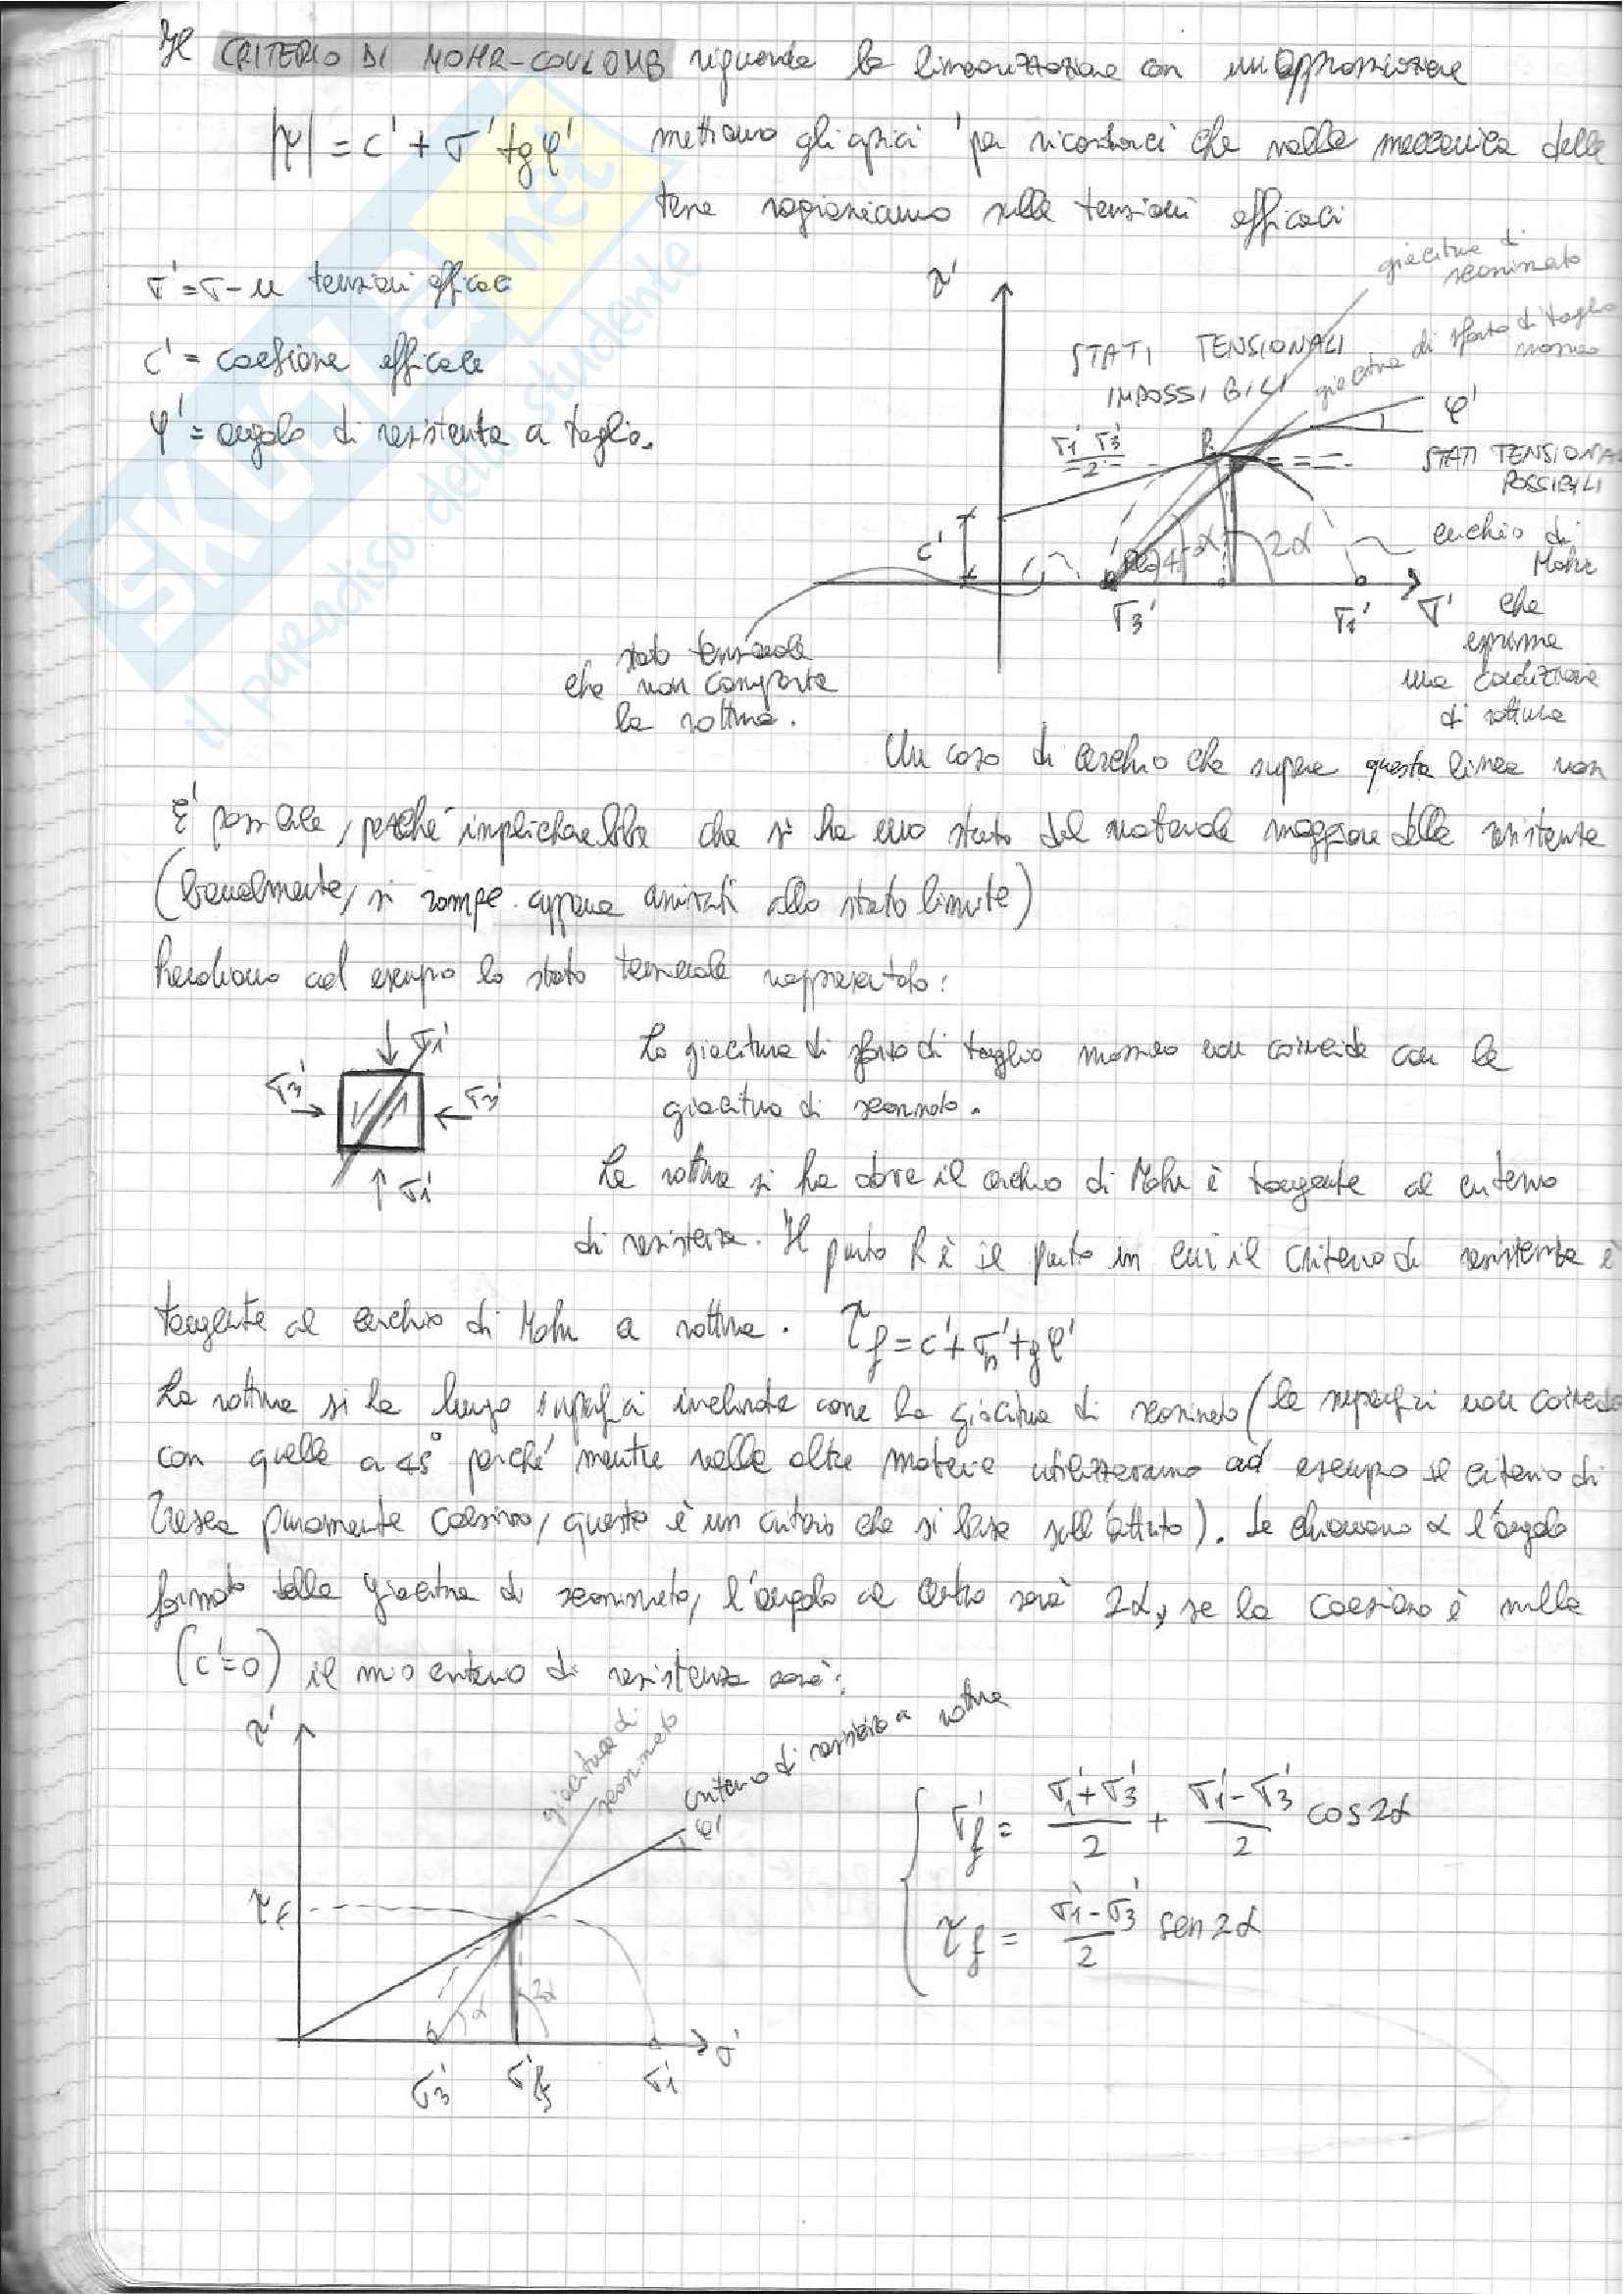 Il CRITERIO DI MOHR-COULOMB riguarda la linearizzazione con un'approssimazione
|τ| = c' + σ' tg φ' mettiamo gli apici ' per ricordarci che nella meccanica delle
terre ragioniamo sulle tensioni efficaci
σ' = σ - u tensioni efficaci
c' = coesione efficace
φ' = angolo di resistenza a taglio.
τ'
giacitura di
scorrimento
giacitura di sforzo di taglio
massimo
STATI TENSIONALI
IMPOSSIBILI
φ'
σ1' σ3'
2
R
STATI TENSIONALI
POSSIBILI
c'
α
2α
σ3'
σ1'
σ'
cerchio di
Mohr
che
esprime
una condizione
di rottura
stato tensionale
che non comporta
la rottura.
Un caso di cerchio che supera questa linea non
è possibile, perché implicherebbe che si ha uno stato del materiale maggiore della resistenza
(banalmente, si rompe appena arrivati allo stato limite)
Prendiamo ad esempio lo stato tensionale rappresentato:
σ1'
σ3'
σ3'
σ1'
La giacitura di sforzo di taglio massimo non coincide con la
giacitura di scorrimento.
La rottura si ha dove il cerchio di Mohr è tangente al criterio
di resistenza. Il punto R è il punto in cui il criterio di resistenza è
tangente al cerchio di Mohr a rottura. τf = c' + σn' tg φ'
La rottura si ha lungo superfici inclinate come la giacitura di scorrimento (le superfici non coincidono
con quelle a 45° perché mentre nelle altre materie utilizzeremo ad esempio il criterio di
Tresca puramente coesivo, questo è un criterio che si basa sull'attrito). Se chiamano α l'angolo
formato dalla giacitura di scorrimento, l'angolo al centro sarà 2α, se la coesione è nulla
(c'=0) il mio criterio di resistenza sarà:
τ'
giacitura di
scorrimento
criterio di resistenza a rottura
φ'
τf
α
2α
σ3'
σ'f
σ1'
σ'
σf' = σ1'+σ3' / 2 + σ1'-σ3' / 2 cos2α
τf = σ1'-σ3' / 2 sen2α
SKUOLA.net
il paradiso dello studente